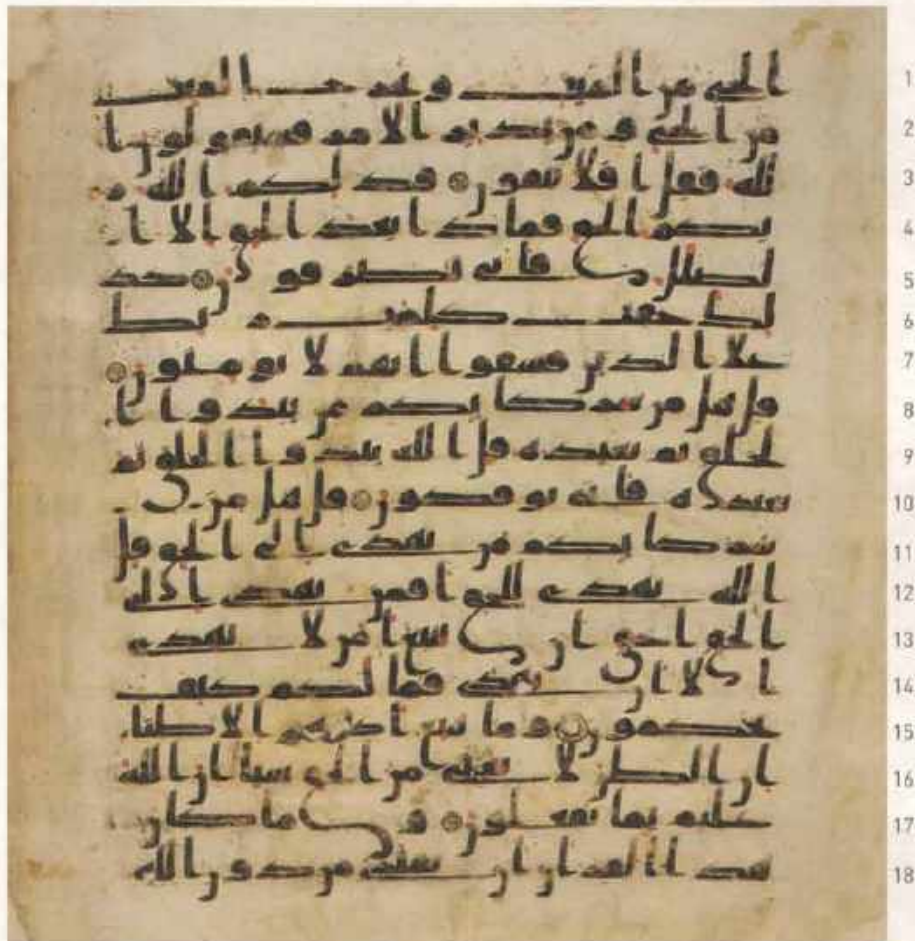 1 الحي من الميت ويخرج الميت
2 من الحي ومن يدبر الامر فسيقولون ا
3 لله فقل افلا تتقون فذلكم الله ر
4 بكم الحق فماذا بعد الحق الا ا
5 لضلل فانى تصرفون كذ
6 لك حقت كلمت ربك
7 علا الذين فسقوا انهم لا يومنون
8 قل هل من شركايكم من يبدوا ا
9 لخلق ثم يعيده قل الله يبدوا الخلق ثم
10 يعيده فانى توفكون قل هل من
11 شركايكم من يهدي الى الحق قل
12 الله يهدي للحق افمن يهدي الى
13 الحق احق ان يتبع امن لا يهدي
14 الا ان يهدى فما لكم كيف
15 تحكمون وما يتبع اكثرهم الا ظنا
16 ان الظن لا يغني من الحق شيا ان الله
17 عليم بما يفعلون وما كان
18 هذا القران ان يفترى من دون الله